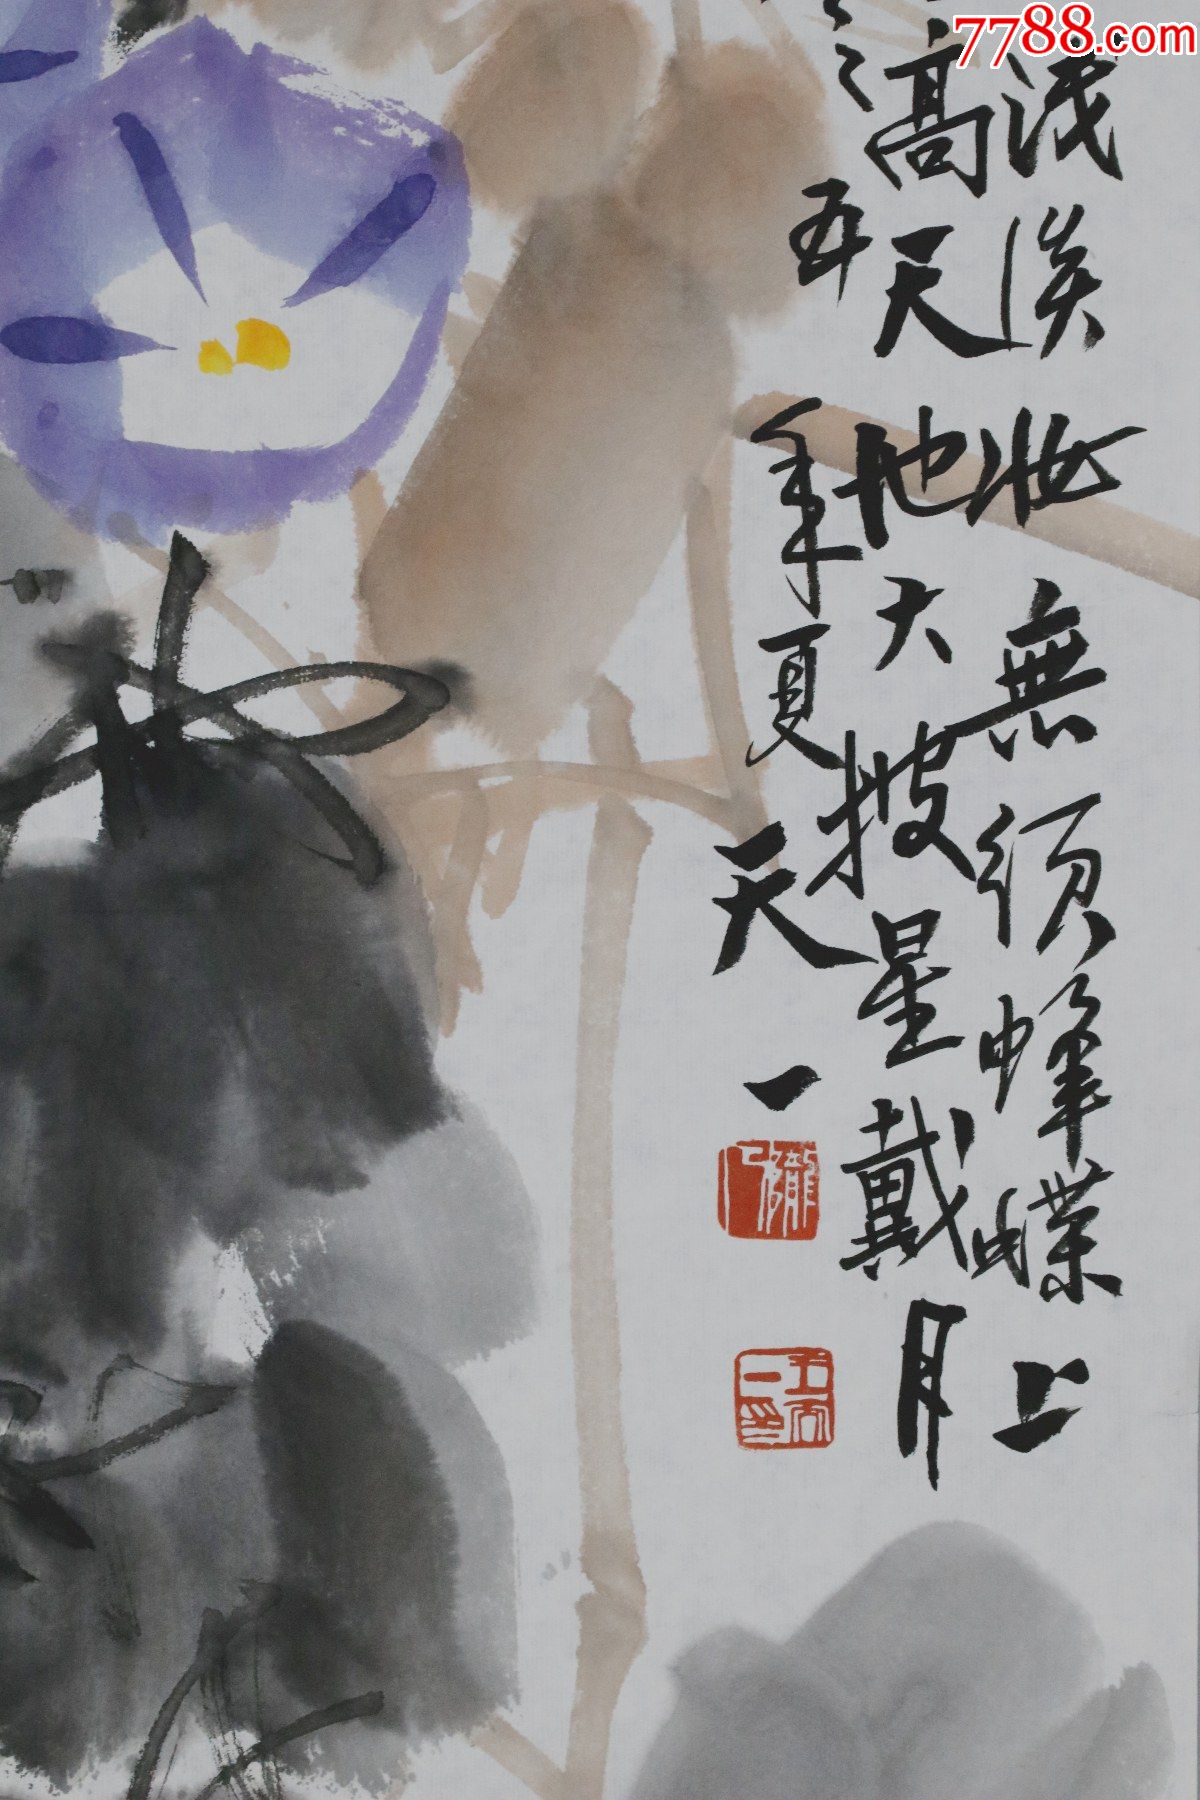 7788.com
浅淡妝無須蜂蝶上
高天地大披星戴月
五年夏天一